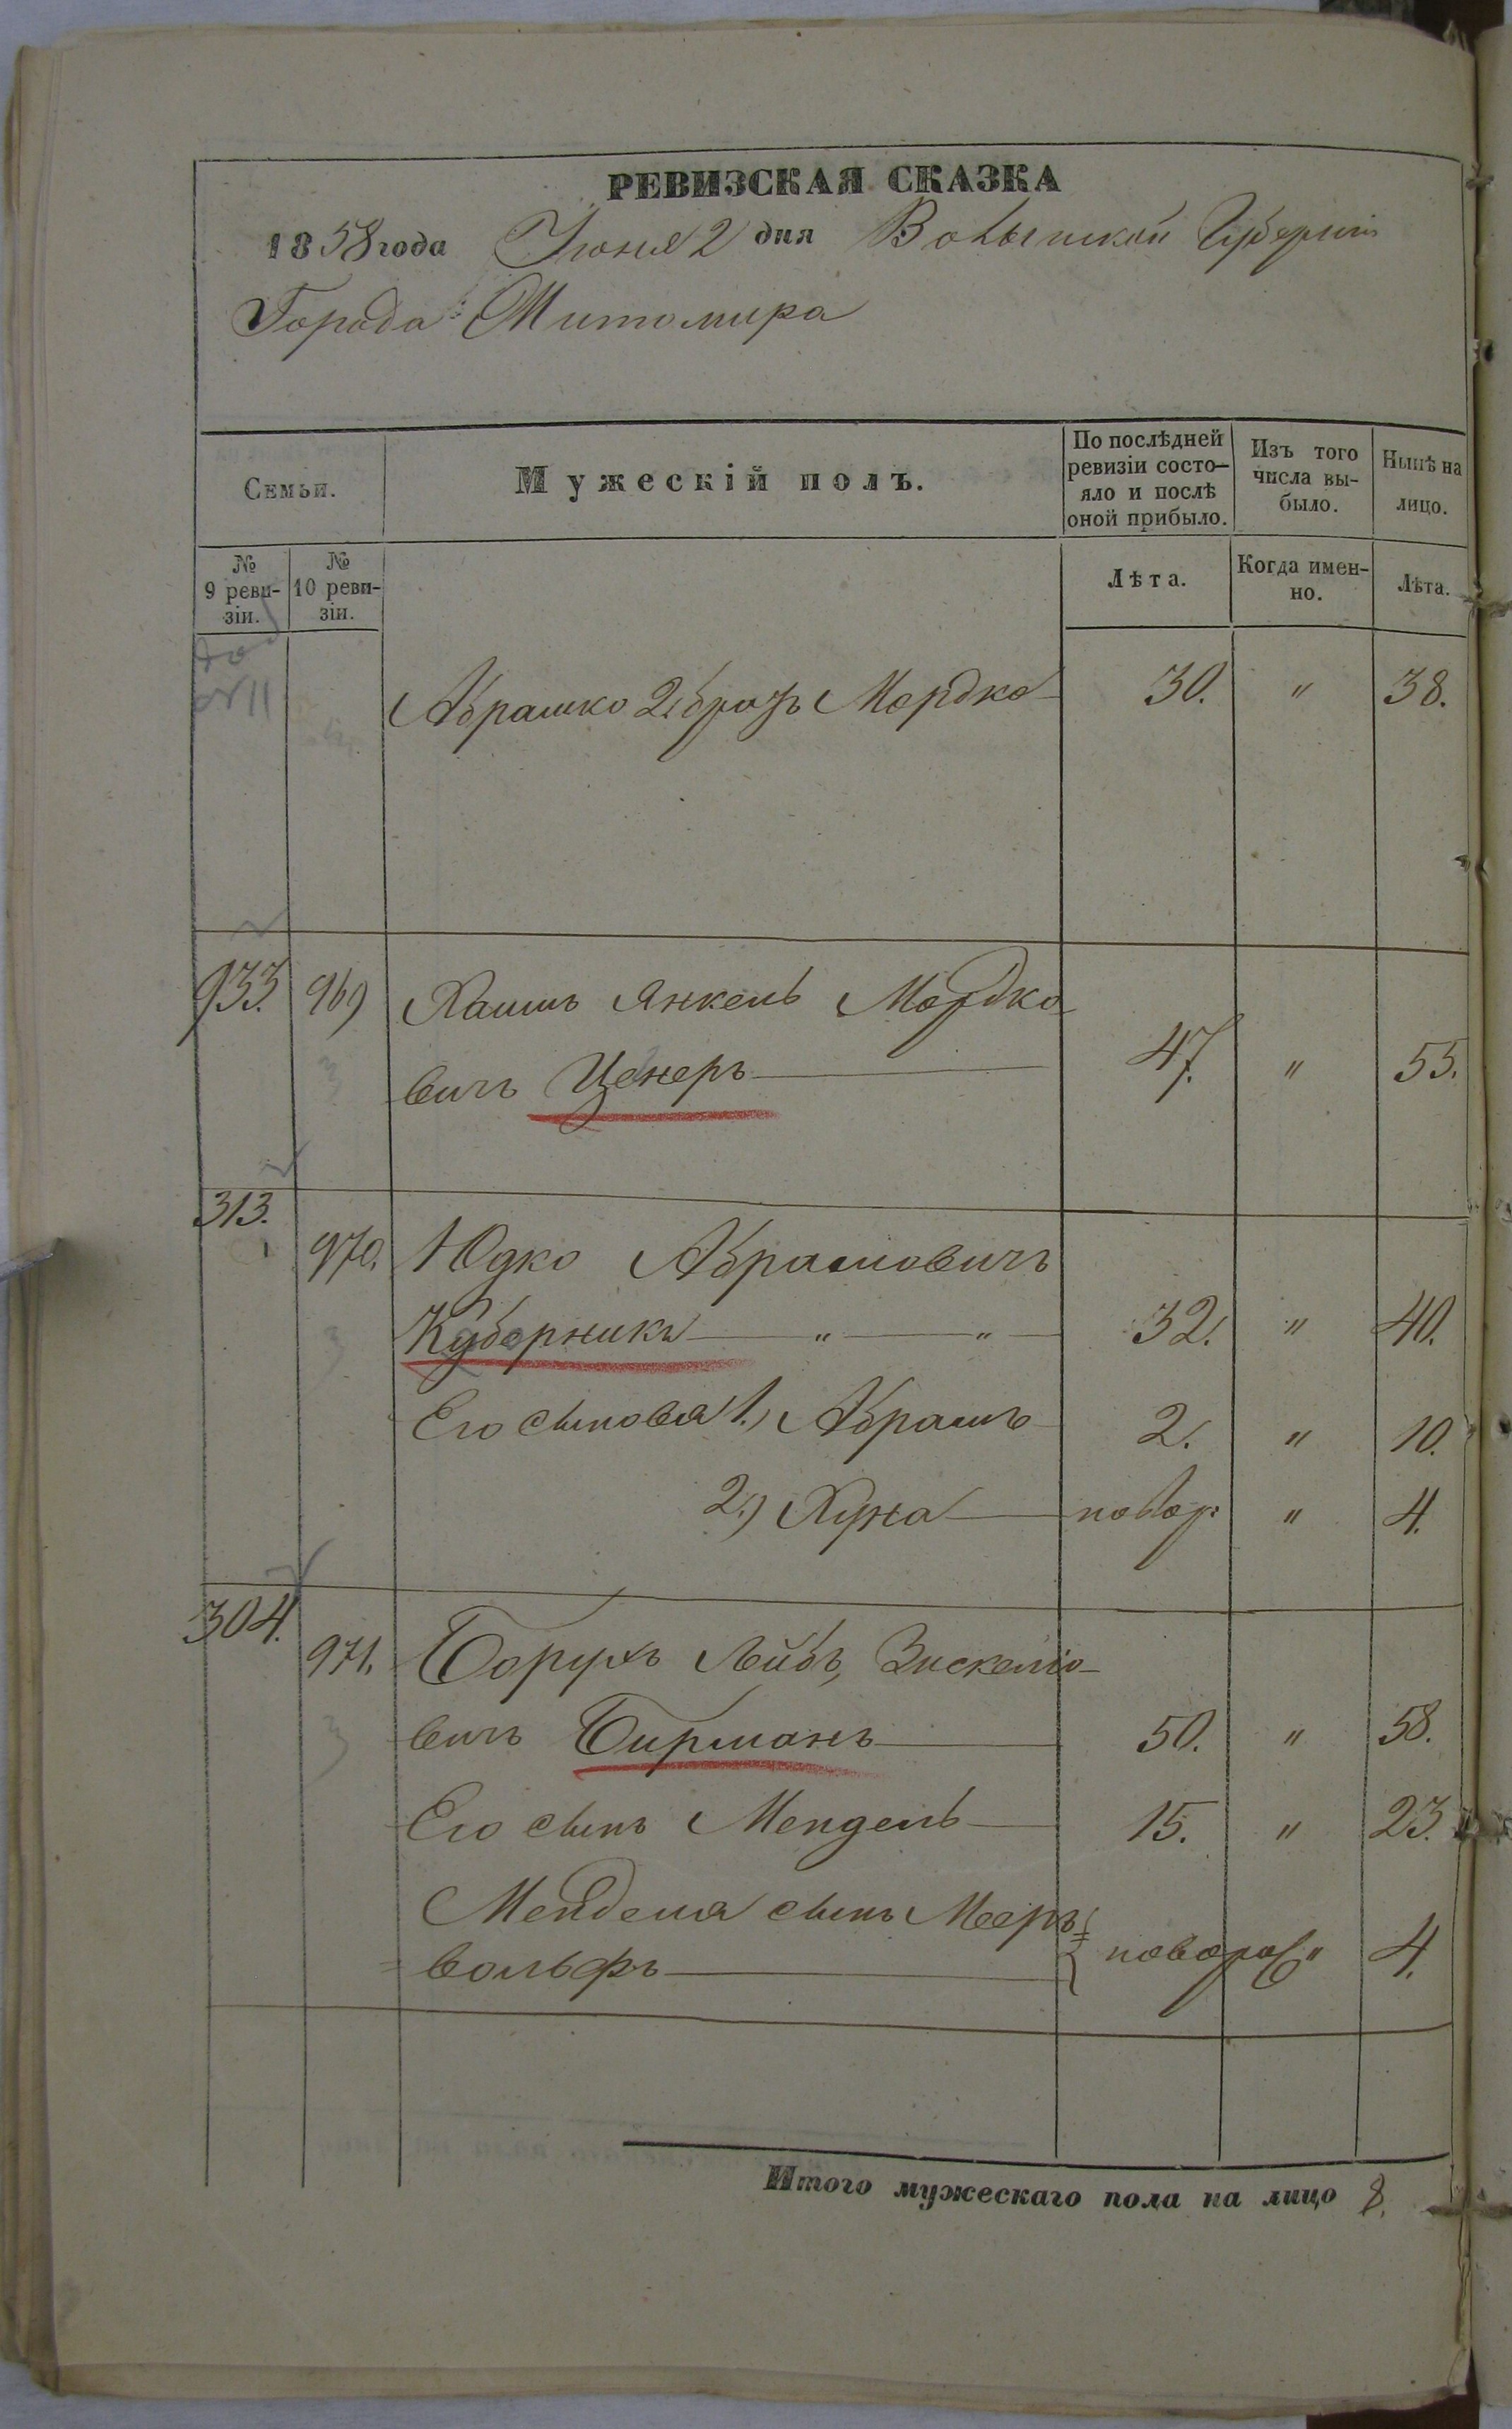 РЕВИЗСКАЯ СКАЗКА
1858 года Июня 2 дня Волынской Губерніи
Города Житомира
Семьи.
Мужескій полъ.
По послѣдней ревизіи состо-
яло и послѣ
оной прибыло.
Изъ того
числа вы-
было.
Нынѣ на
лицо.
№
9 реви-
зіи.
№
10 реви-
зіи.
Лѣта.
Когда имен-
но.
Лѣта.
№11
Абрашко 2й братъ Мордко 30. " 38.
933. 969 Хаимъ Янкель Мордко
вичъ Ценеръ 47. " 55.
313. 970. Юдко Абрамовичъ
Куберникъ " " 32. " 40.
Его сыновья 1.) Абрамъ 2. " 10.
2.) Хуна новор: " 4.
304. 971. Борухъ Лейбъ, Зискеліо-
вичъ Бирманъ 50. " 58.
Его сынъ Мендель 15. " 23.
Менделя сынъ Мееръ=
вольфъ новорож " 4.
Итого мужескаго пола на лицо 8.